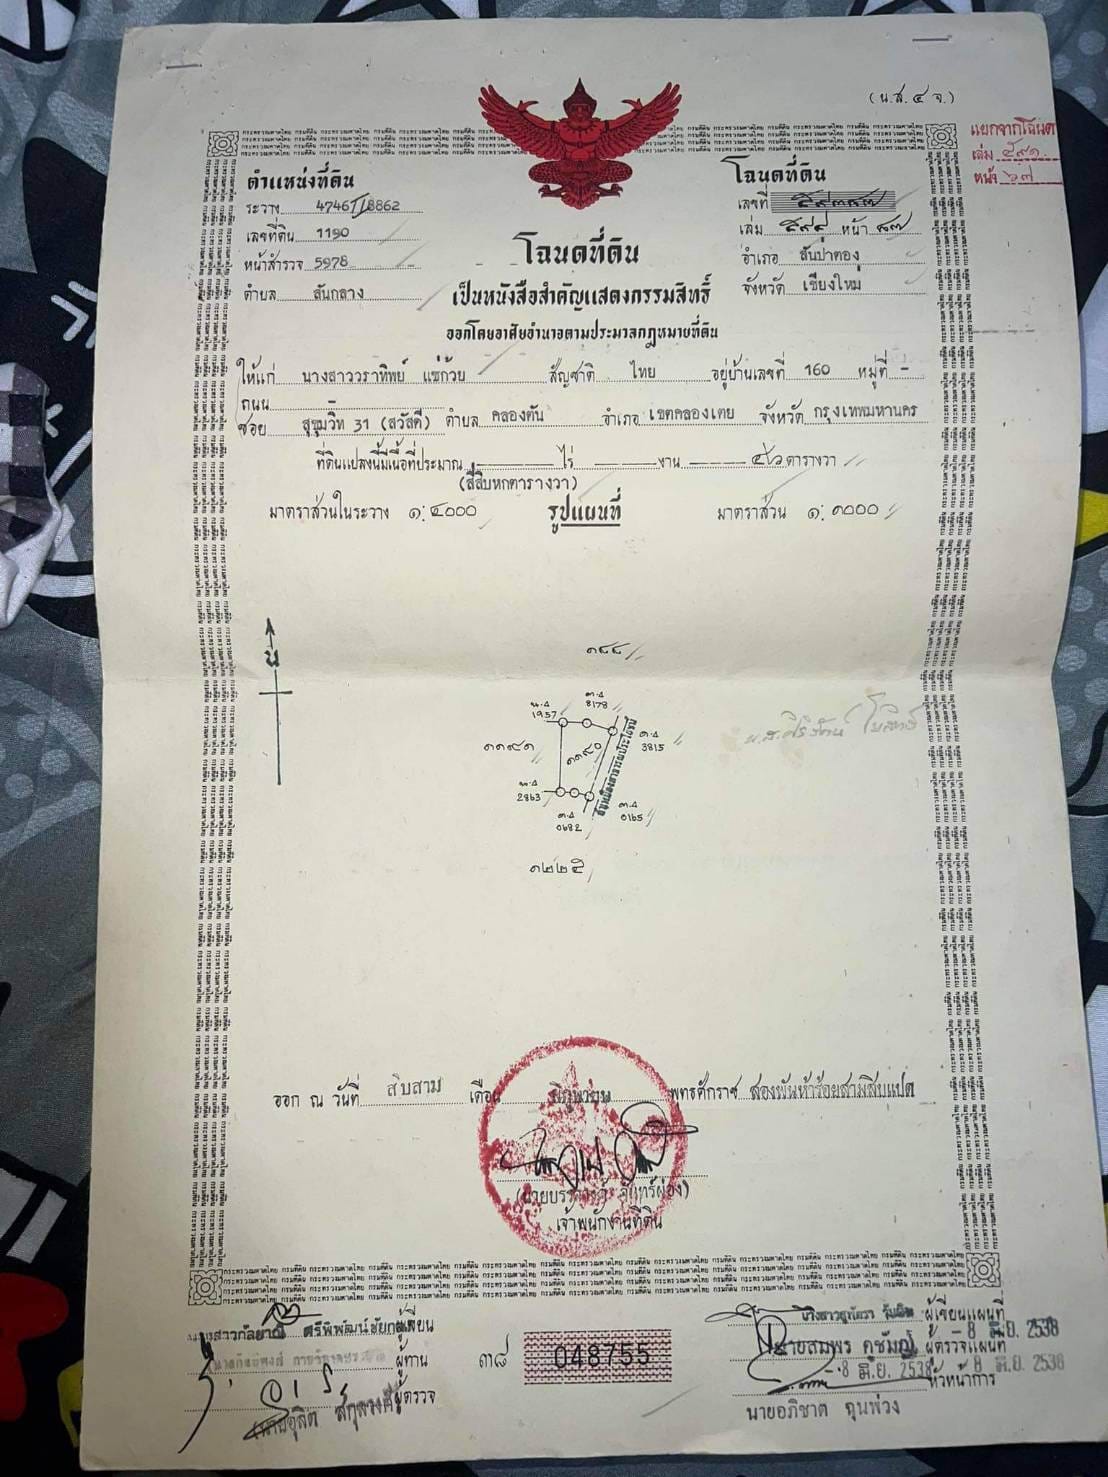 (น.ส.๔ จ.)
แยกจากโฉนด
เล่ม ๕๙๑
หน้า ๖๗
ตำแหน่งที่ดิน
ระวาง 4746 II 8862
เลขที่ดิน 1190
หน้าสำรวจ 5978
ตำบล สันกลาง
โฉนดที่ดิน
เลขที่ ๕๙๓๘๗
เล่ม ๕๙๔ หน้า ๘๗
อำเภอ สันป่าตอง
จังหวัด เชียงใหม่
โฉนดที่ดิน
เป็นหนังสือสำคัญแสดงกรรมสิทธิ์
ออกโดยอาศัยอำนาจตามประมวลกฎหมายที่ดิน
ให้แก่ นางสาววราทิพย์ แซ่ก้วย สัญชาติ ไทย อยู่บ้านเลขที่ 160 หมู่ที่ -
ถนน
ซอย สุขุมวิท 31 (สวัสดี) ตำบล คลองตัน อำเภอ เขตคลองเตย จังหวัด กรุงเทพมหานคร
ที่ดินแปลงนี้มีเนื้อที่ประมาณ — ไร่ — งาน — ๔๖ ตารางวา
(สี่สิบหกตารางวา)
มาตราส่วนในระวาง ๑:๔๐๐๐ รูปแผนที่ มาตราส่วน ๑:๑๐๐๐
น
๑๘๘
น.ด 1957
ค.ด 8178
๑๑๙๑
๑๑๙๐
ค.ด 3815
ลำเหมืองสาธารณประโยชน์
น.ด 2863
ค.ด 0682
ค.ด 0165
๑๒๒๕
น.ส.ศิริรัตน์
ออก ณ วันที่ สิบสาม เดือน มิถุนายน พุทธศักราช สองพันห้าร้อยสามสิบแปด
จันทร์ผ่อง)
เจ้าพนักงานที่ดิน
นางสาวกัลยาณี ศรีพิพัฒน์ชัยกุล ผู้เขียน
ผู้ทาน
ผู้ตรวจ
๓๘
048755
ผู้เขียนแผนที่
- 8 มิ.ย. 2538
นายสมพร คูชัมภู ผู้ตรวจแผนที่
- 8 มิ.ย. 2538
- 8 มิ.ย. 2538
หัวหน้าการ
นายอภิชาต ฉุนพ่วง